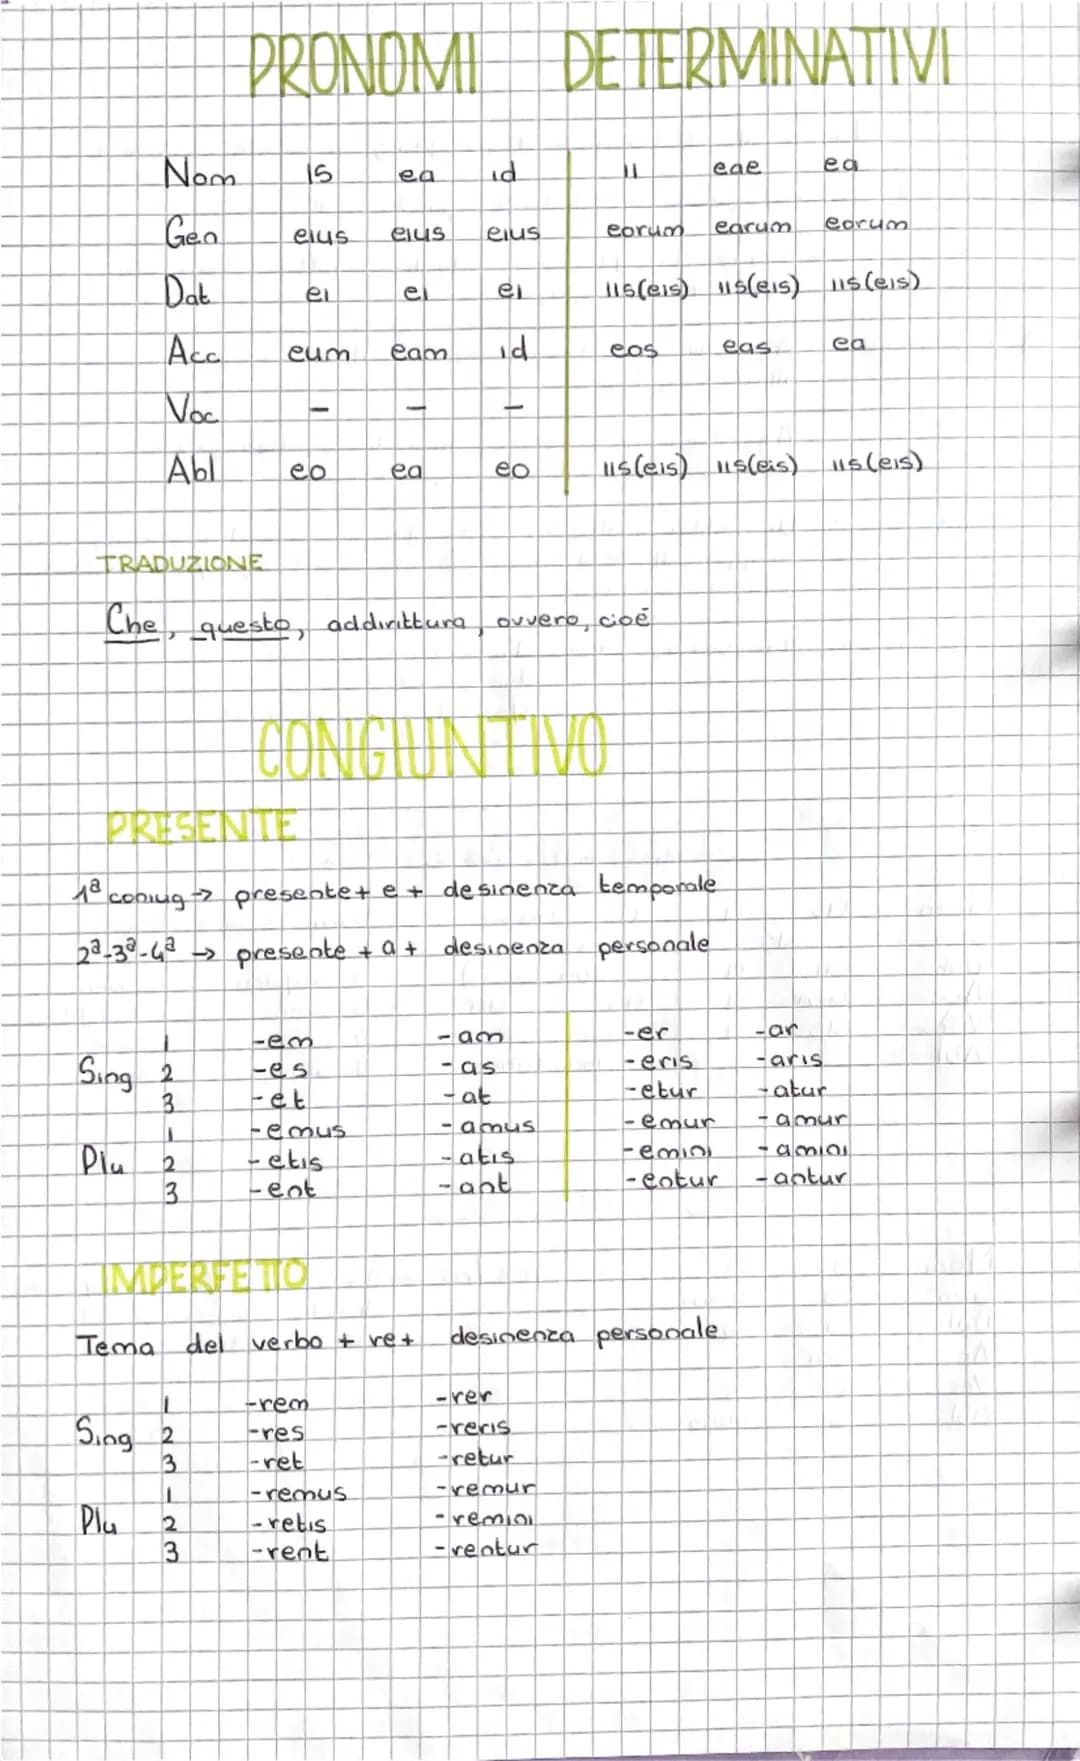 PRONOMI DETERMINATIVI
Nom is ea id ii eae ea
Gen eius eius eius eorum earum eorum
Dat ei ei ei iis(eis) iis(eis) iis(eis)
Acc eum eam id eos eas ea
Voc - - -
Abl eo ea eo iis(eis) iis(eis) iis(eis)
TRADUZIONE
Che, questo, addirittura, ovvero, cioè
CONGIUNTIVO
PRESENTE
1ª coniug → presente + e + desinenza temporale
2ª-3ª-4ª → presente + a + desinenza personale
1 -em -am -er -ar
Sing 2 -es -as -eris -aris
3 -et -at -etur -atur
1 -emus -amus -emur -amur
Plu 2 -etis -atis -emini -amini
3 -ent -ant -entur -antur
IMPERFETTO
Tema del verbo + re + desinenza personale
1 -rem -rer
Sing 2 -res -reris
3 -ret -retur
1 -remus -remur
Plu 2 -retis -remini
3 -rent -rentur